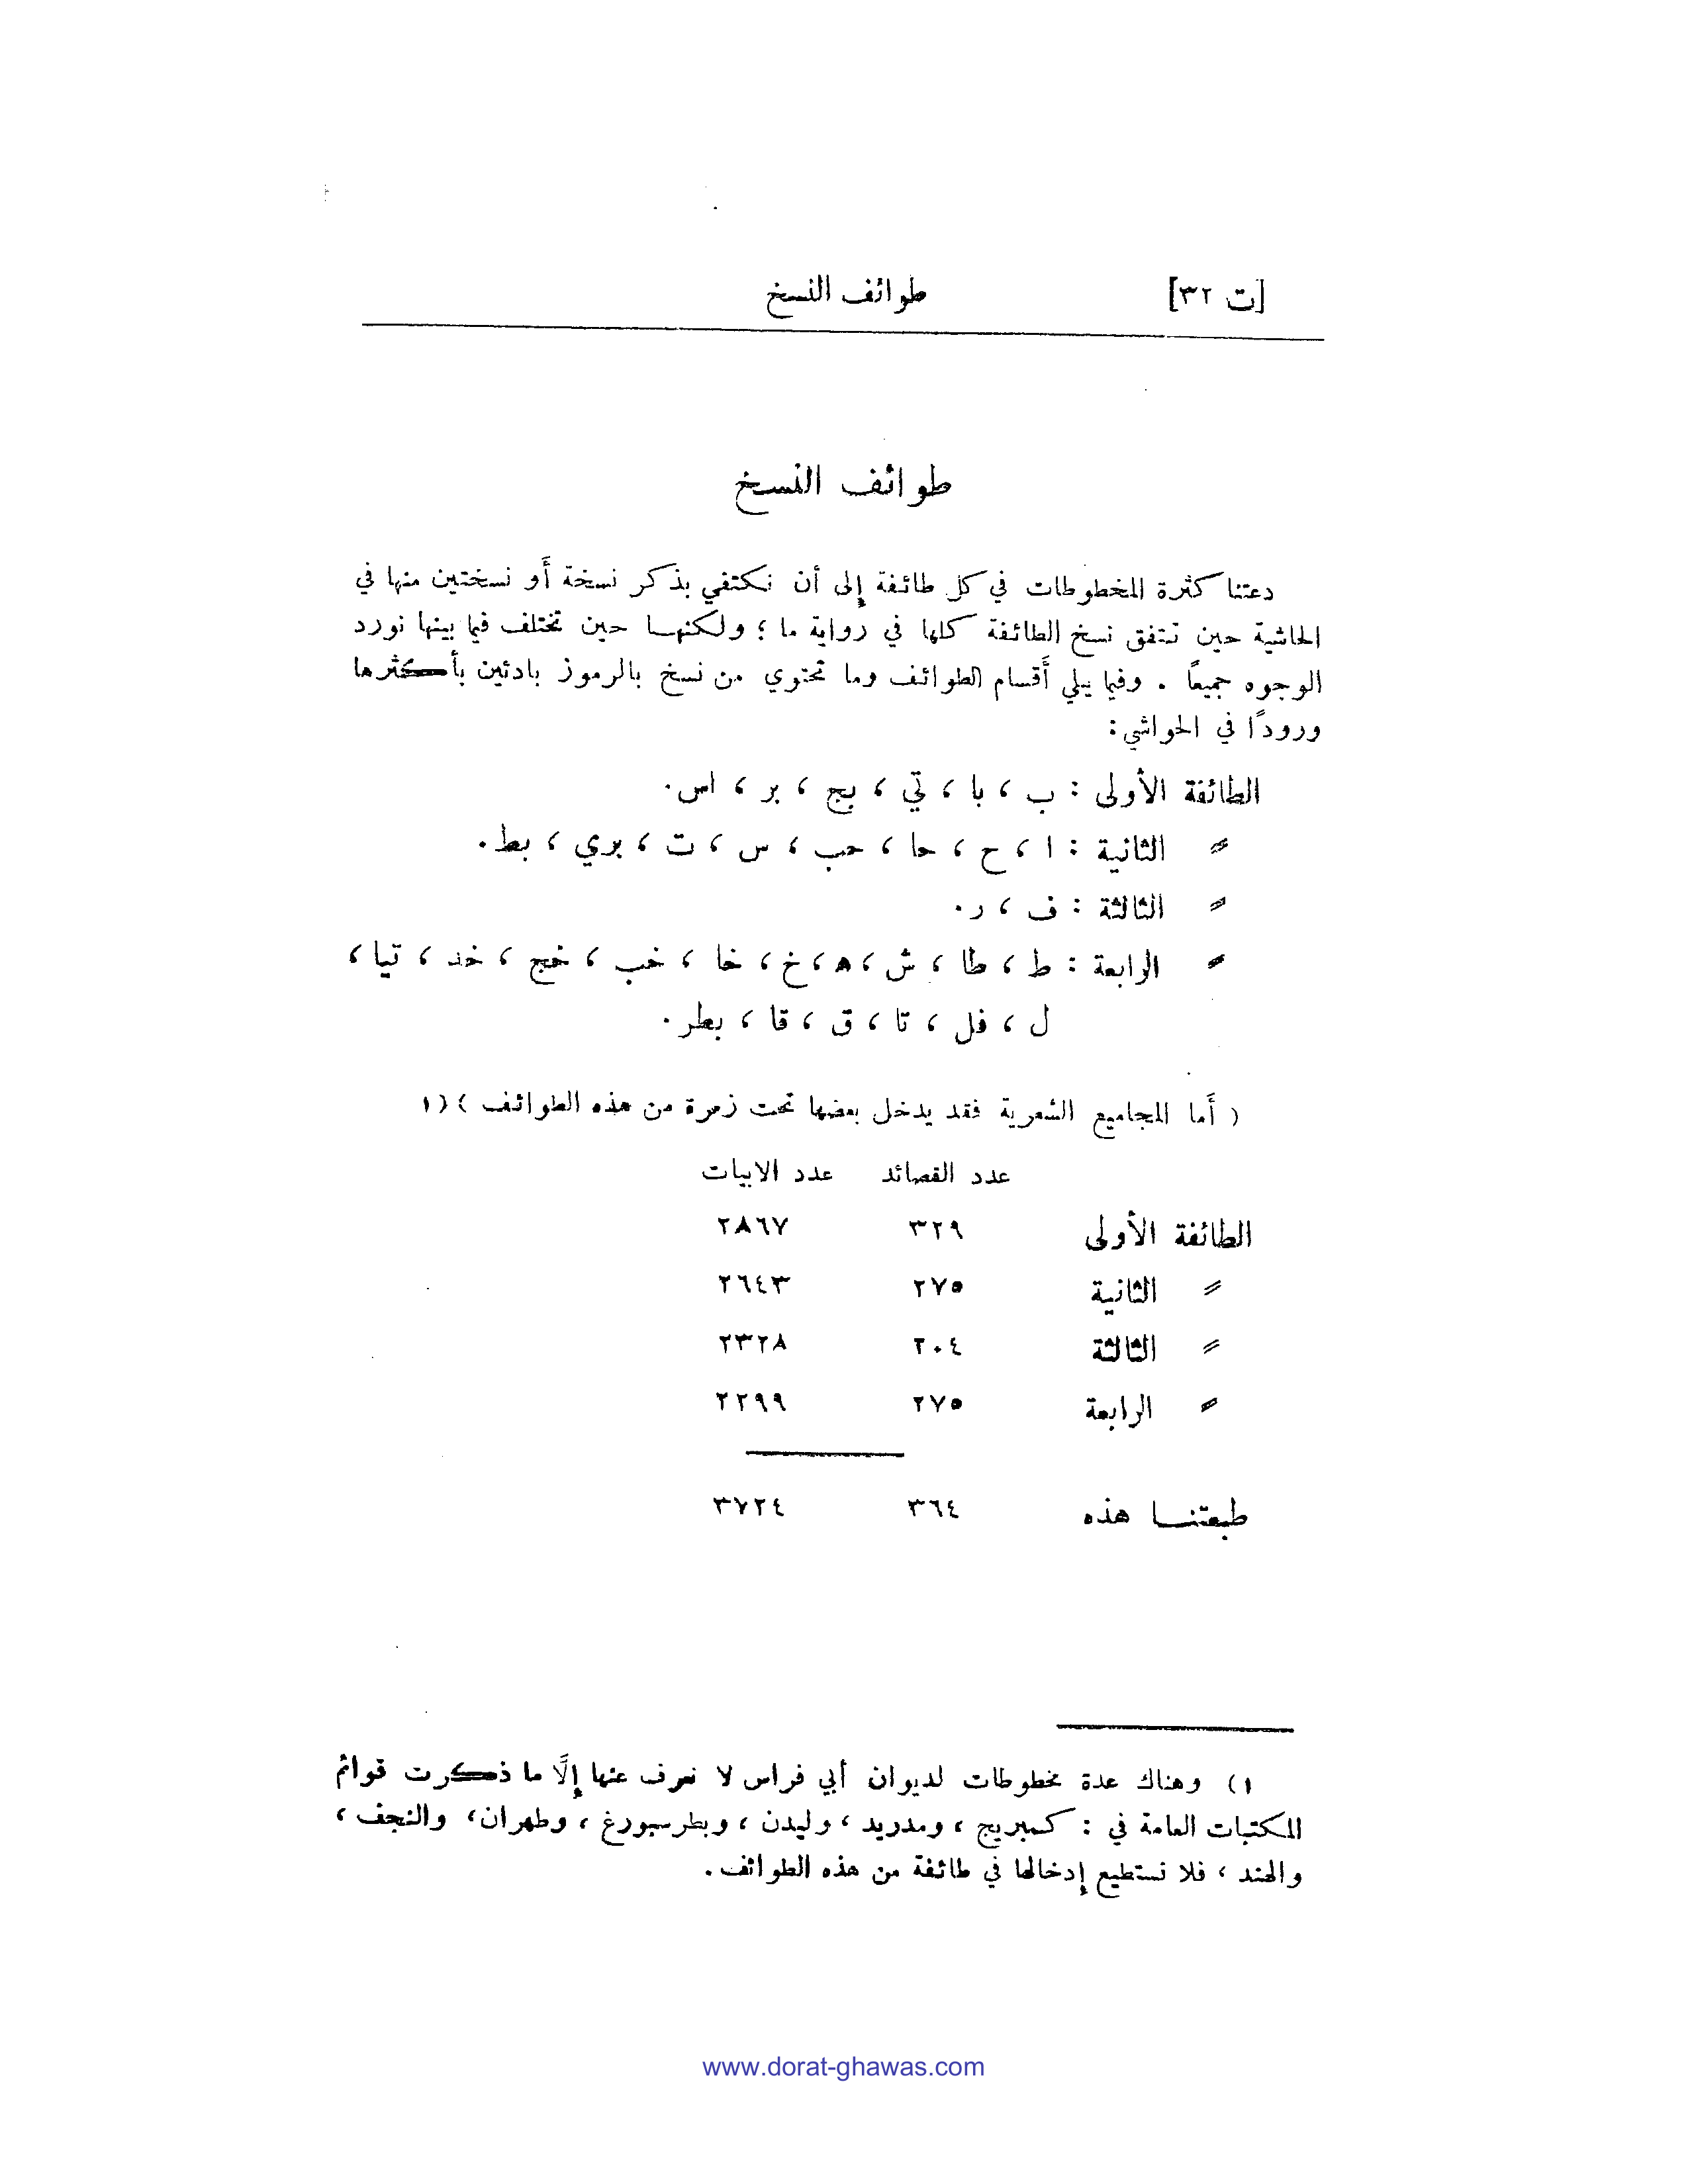 [ت ٣٢] طوائف النسخ
طوائف النسخ
دعتنا كثرة المخطوطات في كل طائفة إلى أن نكتفي بذكر نسخة أَو نسختين منها في
الحاشية حين تتفق نسخ الطائفة كلها في رواية ما ؛ ولكنهــا حين تختلف فيما بينها نورد
الوجوه جميعاً . وفيما يلي أَقسام الطوائف وما تحتوي من نسخ بالرموز بادئين بأكثرها
ورودًا في الحواشي :
الطائفة الأولى : ب ، با ، تي ، بج ، بر ، اس.
〃 الثانية : ا ، ح ، حا ، حب ، س ، ت ، بري ، بط.
〃 الثالثة : ف ، ر.
〃 الرابعة : ط ، طا ، ش ، ه ، خ ، خا ، خب ، خج ، خد ، تيا ،
ل ، فل ، تا ، ق ، قا ، بطر.
( أَما المجاميع الشعرية فقد يدخل بعضها تحت زمرة من هذه الطوائف ) (١
عدد القصائد عدد الابيات
الطائفة الأولى ٣٢٩ ٢٨٦٧
〃 الثانية ٢٧٥ ٢٦٤٣
〃 الثالثة ٢٠٤ ٢٣٢٨
〃 الرابعة ٢٧٥ ٢٢٩٩
طبعتنــا هذه ٣٦٤ ٣٧٢٤
١) وهناك عدة مخطوطات لديوان أبي فراس لا نعرف عنها إلَّا ما ذكرت قوائم
المكتبات العامة في : كمبريج ، ومدريد ، وليدن ، وبطرسبورغ ، وطهران، والنجف ،
والهند ، فلا نستطيع إدخالها في طائفة من هذه الطوائف.
www.dorat-ghawas.com